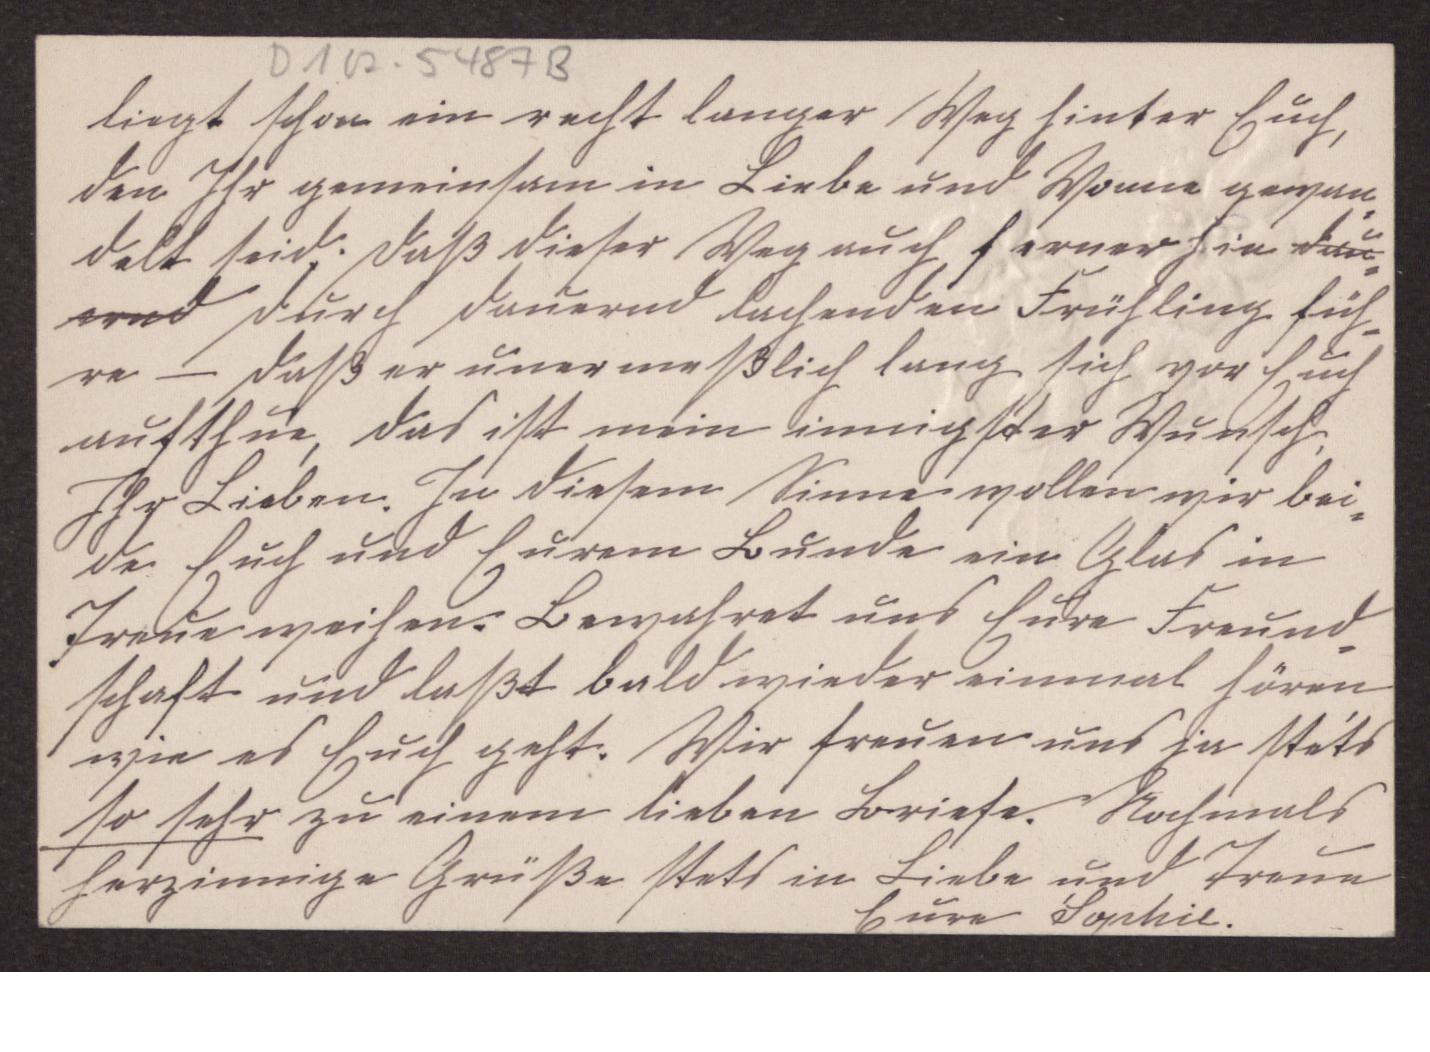 D 1 12. 5487B
liegt schon ein recht langer Weg hinter Euch,
den Ihr gemeinsam in Liebe und Wonne gewan-
delt seid. Daß dieser Weg auch fernerhin dau-
ernd durch dauernd lachenden Frühling füh-
re — daß er unermeßlich lang sich vor Euch
aufthue, das ist mein innigster Wunsch,
Ihr Lieben. In diesem Sinne wollen wir bei-
de Euch und Eurem Bunde ein Glas in
Treue weihen. Bewahret uns Eure Freund-
schaft und laßt bald wieder einmal hören
wie es Euch geht. Wir freuen uns ja stets
so sehr zu einem lieben Briefe. Nochmals
herzinnige Grüße stets in Liebe und Treue
Eure Sophie.